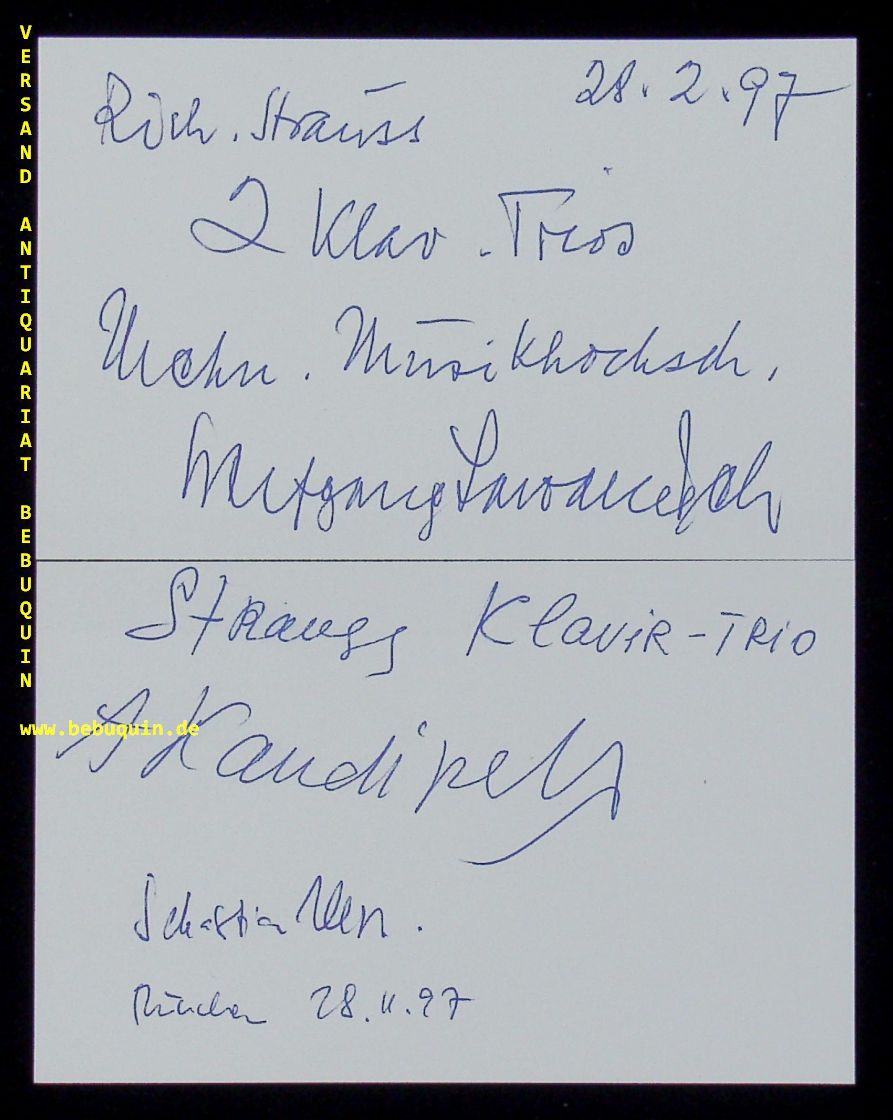 VERSAND ANTIQUARIAT BEBUQUIN
www.bebuquin.de
28.2.97
Rich. Strauss
2 Klav.-Trios
Mchn. Musikhochsch.
Wolfgang Sawallisch
Strauss Klavir-Trio
Sebastian
München 28.II.97